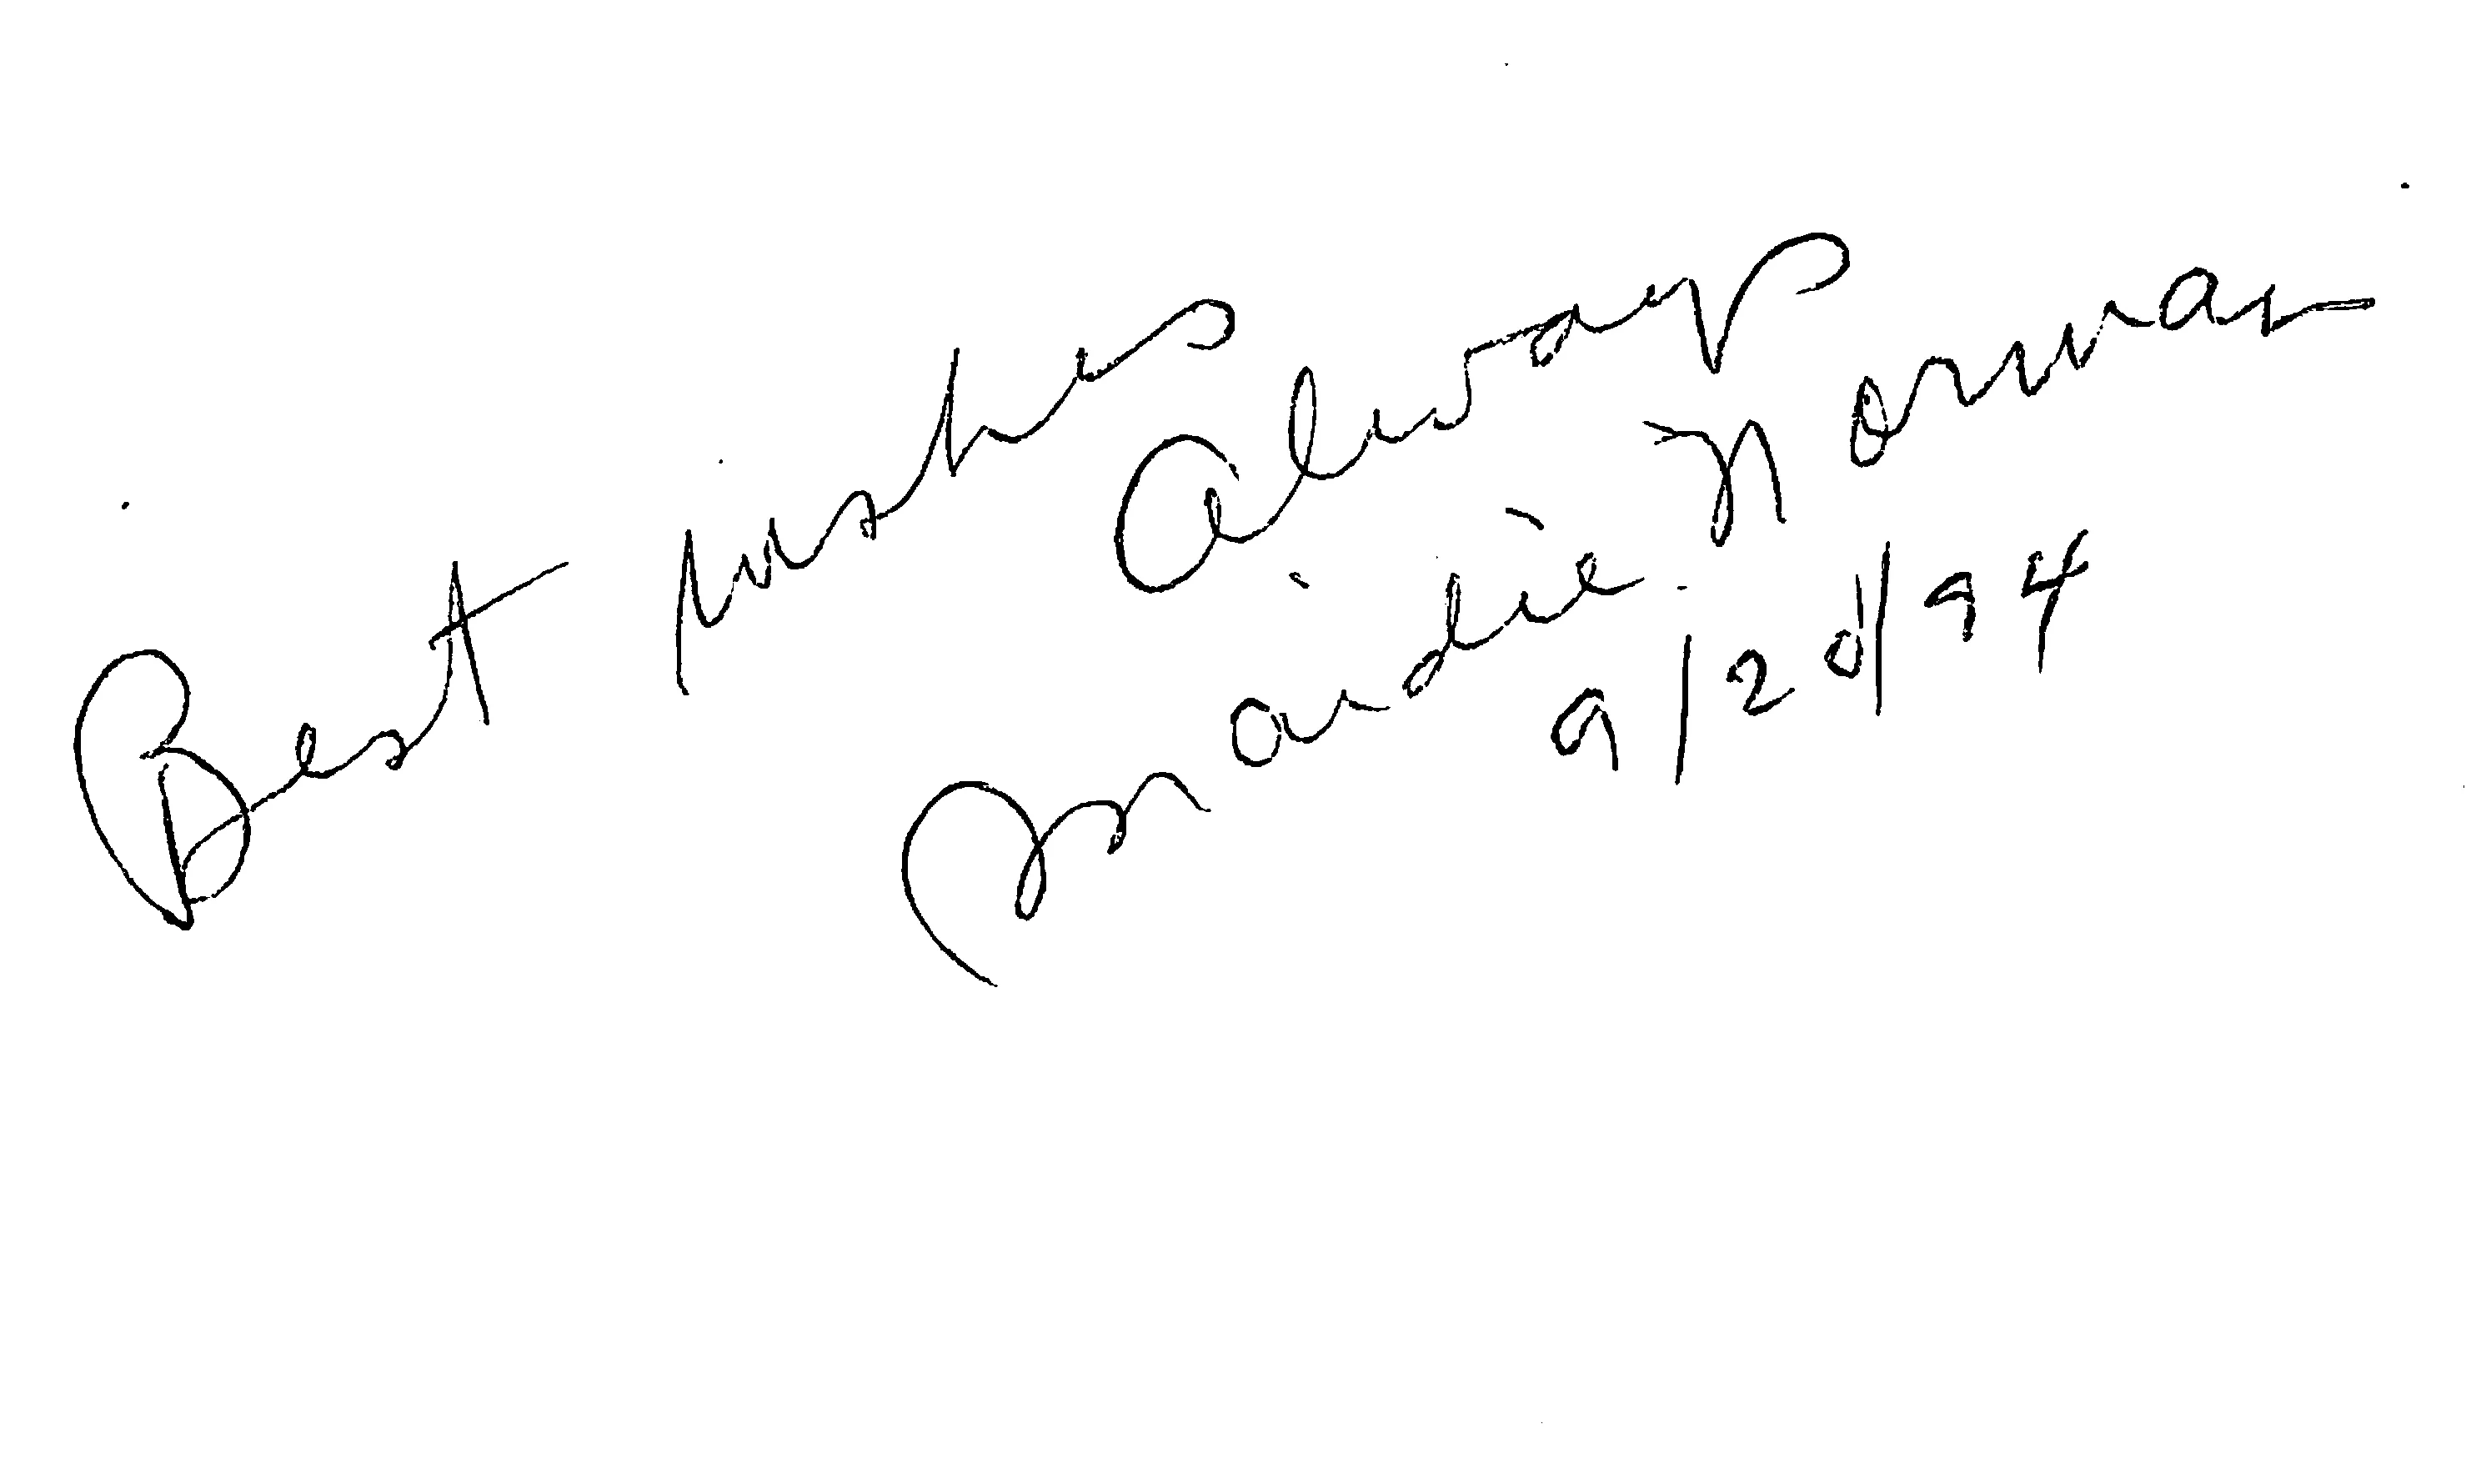 Best Wishes Always
Maidie Norman
9/20/94